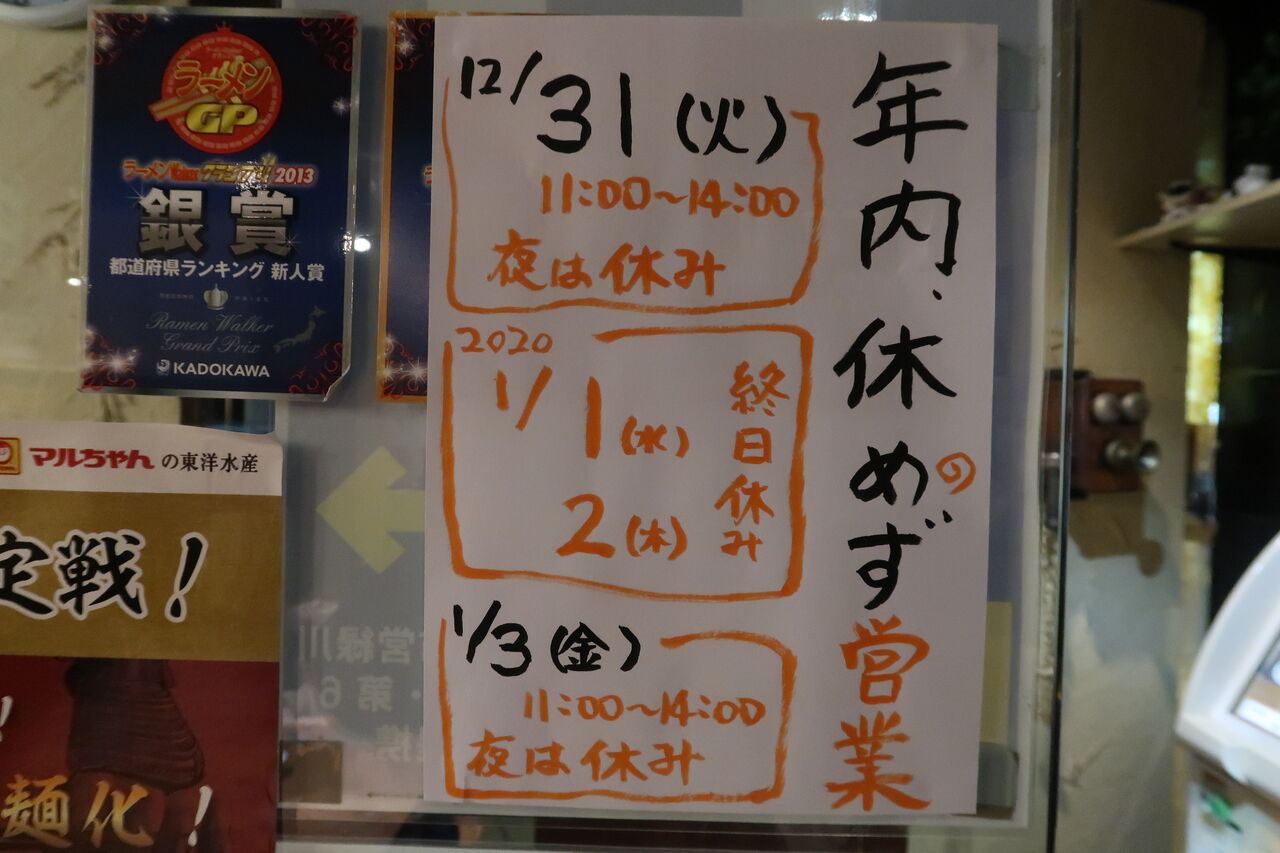 年内、休まずの営業
12/31(火)
11:00〜14:00
夜は休み
2020
1/1(水)
2(木)
終日休み
1/3(金)
11:00〜14:00
夜は休み
ラーメン
GP
ラーメンWalkerグランプリ2013
銀賞
都道府県ランキング 新人賞
Ramen Walker
Grand Prix
KADOKAWA
マルちゃんの東洋水産
定戦!
麺化!